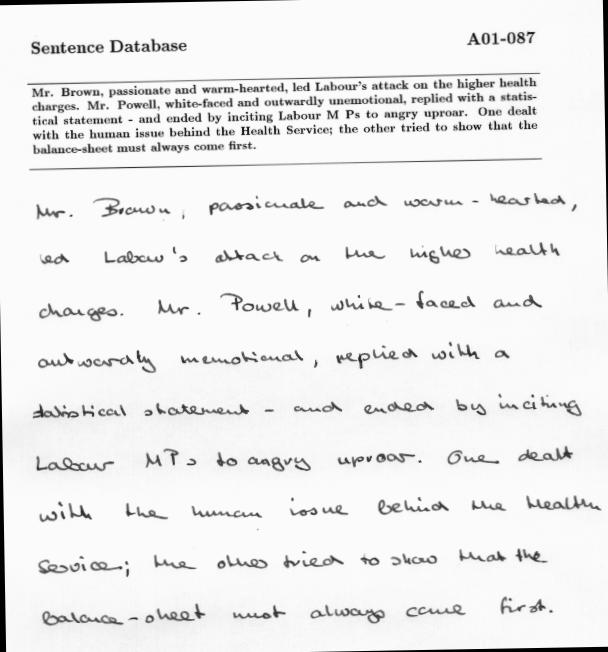 Sentence Database
A01-087
Mr. Brown, passionate and warm-hearted, led Labour's attack on the higher health
charges. Mr. Powell, white-faced and outwardly unemotional, replied with a statis-
tical statement - and ended by inciting Labour M Ps to angry uproar. One dealt
with the human issue behind the Health Service; the other tried to show that the
balance-sheet must always come first.
Mr. Brown, passionate and warm-hearted,
led Labour's attack on the higher health
charges. Mr. Powell, white-faced and
outwardly unemotional, replied with a
statistical statement - and ended by inciting
Labour MPs to angry uproar. One dealt
with the human issue behind the Health
Service; the other tried to show that the
balance-sheet must always come first.